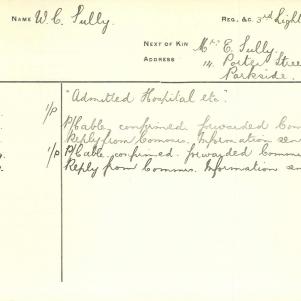 NAME W. C. Sully. REG. &C. 3rd Light
NEXT OF KIN Mr. E. Sully.
ADDRESS 14. Porter Stree
Parkside.
"Admitted Hospital etc."
1/p P/Cable confirmed. forwarded Com
Reply from Commis. Information sen
1/p P/Cable confirmed. forwarded Comm
Reply from Commis. Information sen